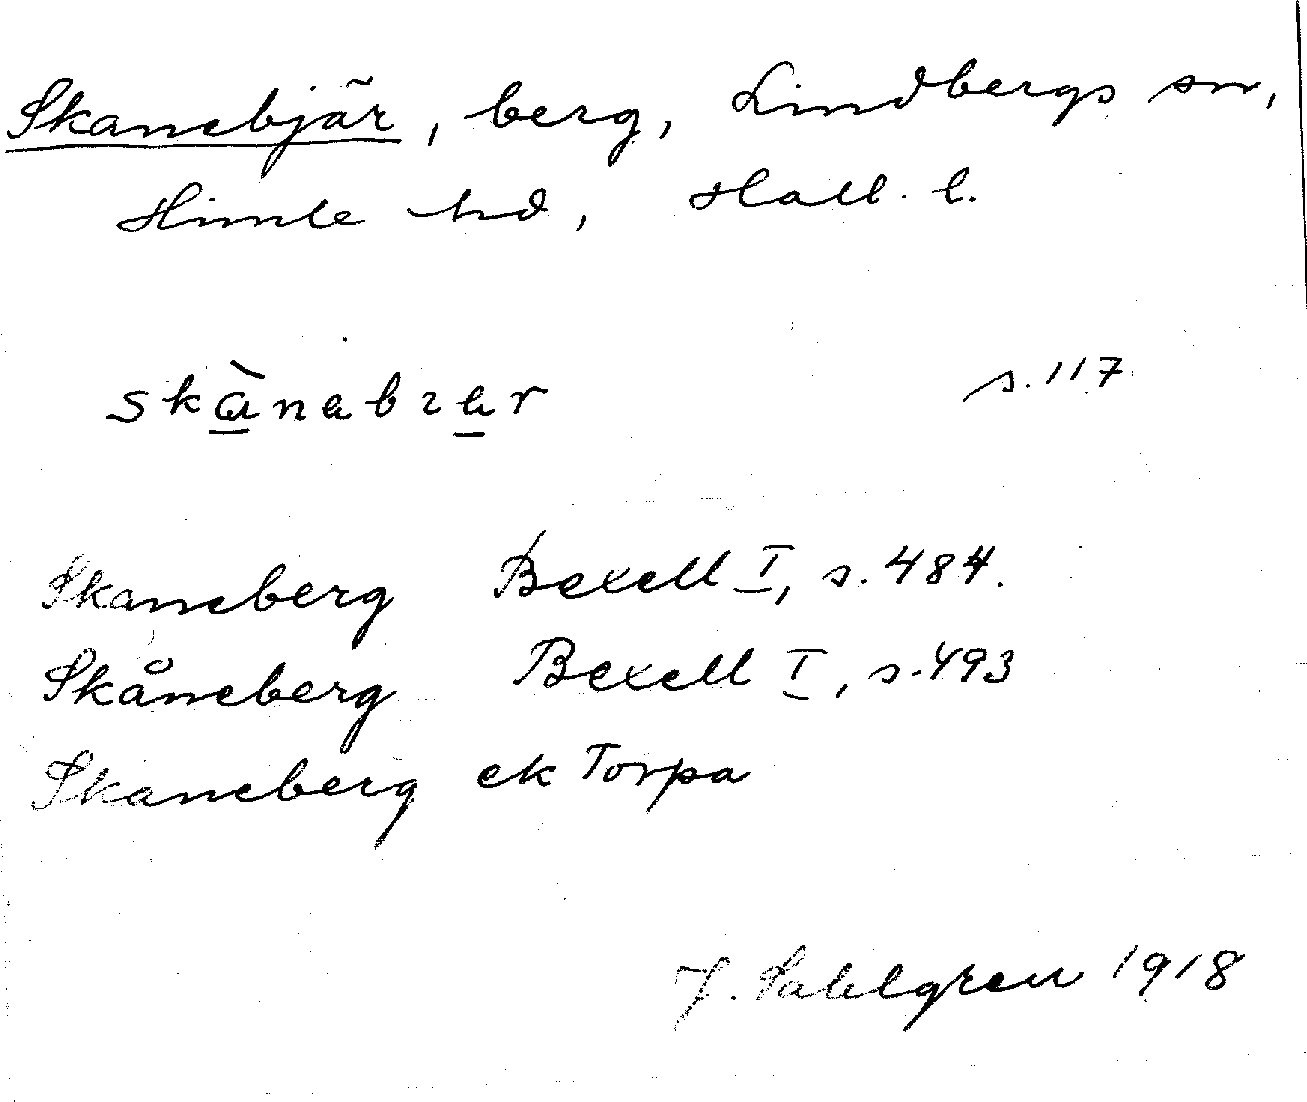 Skanebjär, berg, Lindbergs sn,
Himle hd, Hall. l.
skànabɿar s. 117
Skaneberg Bexell I, s. 484.
Skåneberg Bexell I, s. 493
Skaneberg ek Torpa
J. Sahlgren 1918